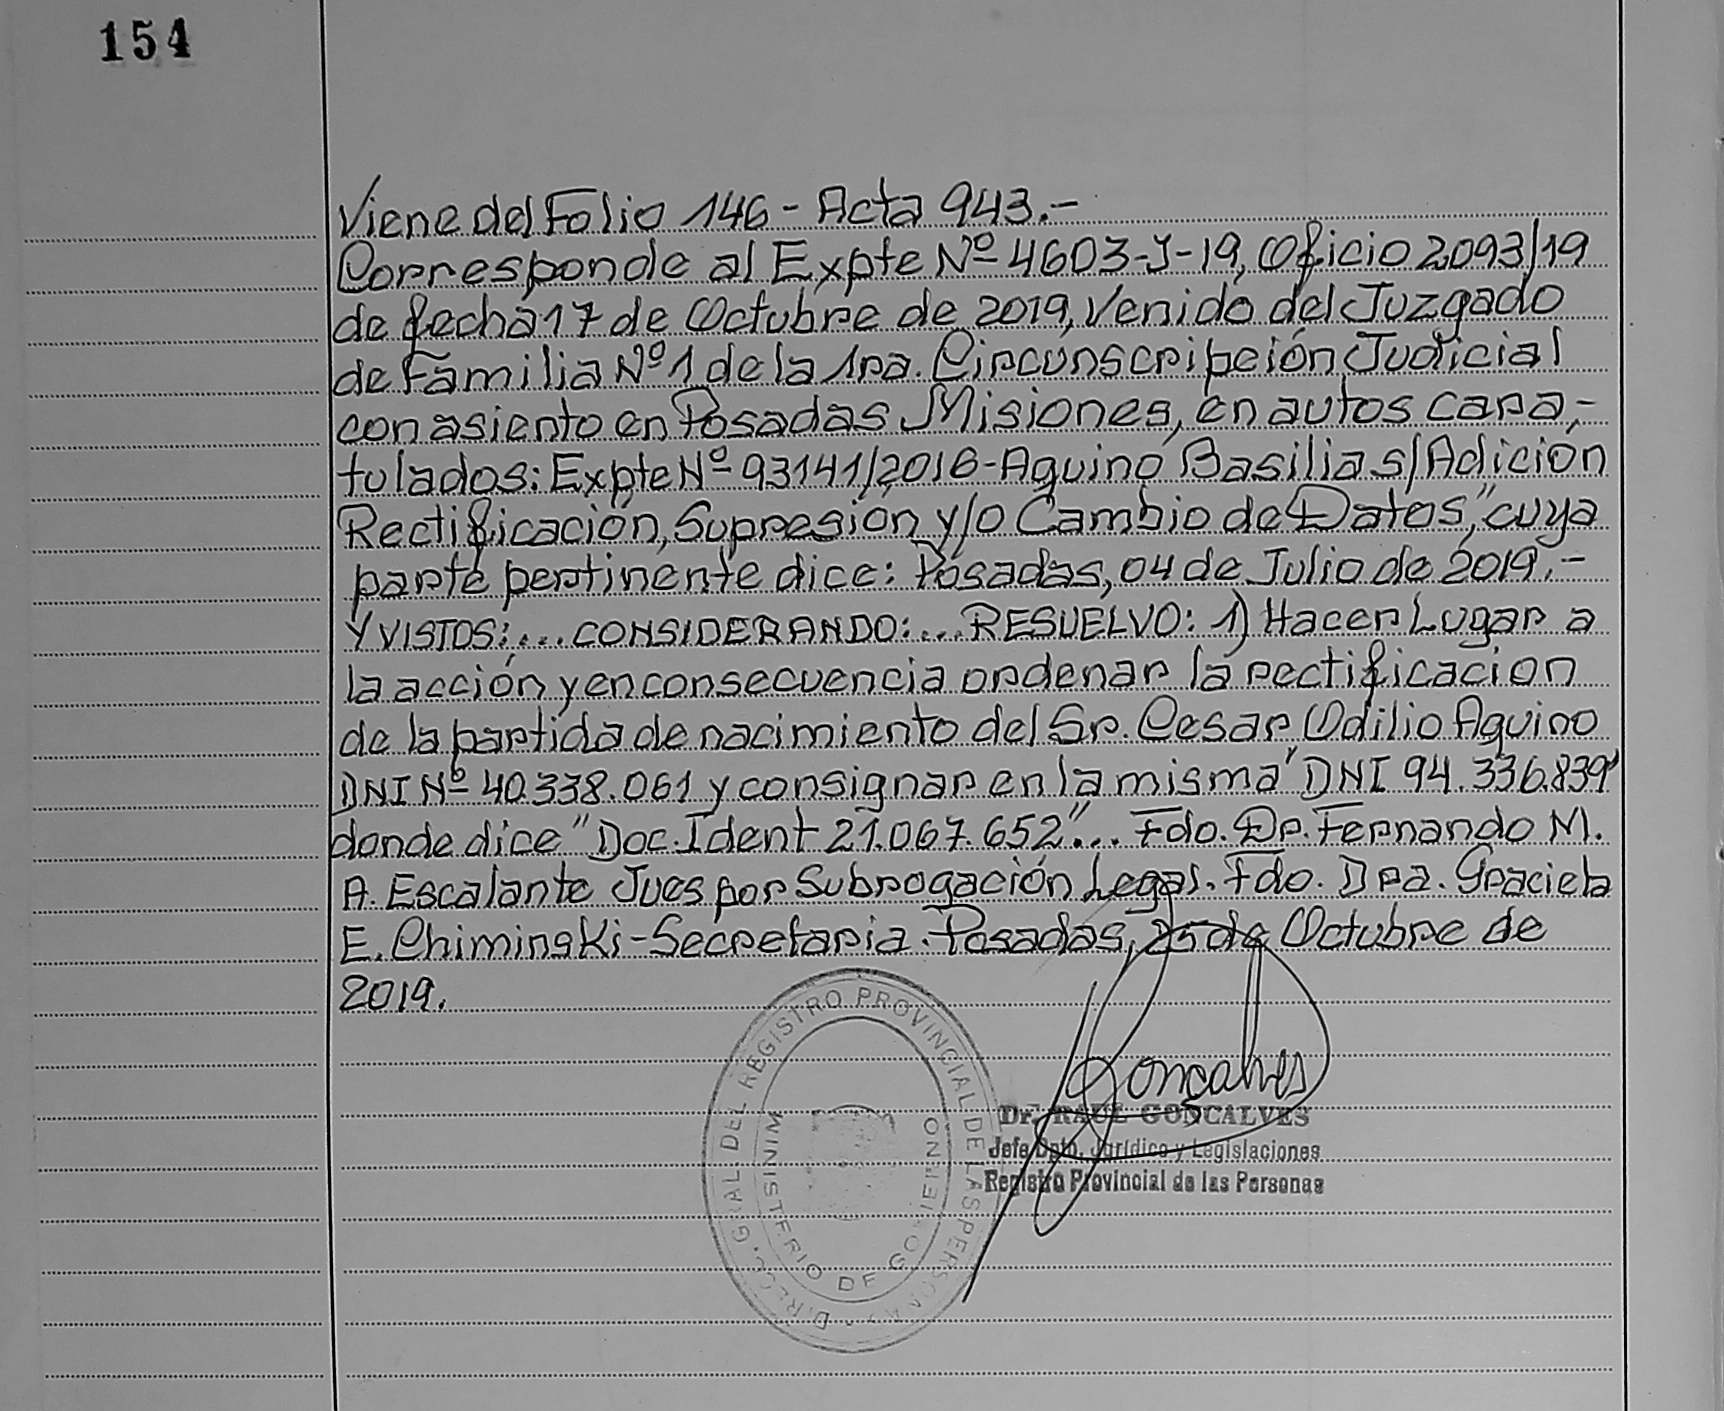 154
Viene del Folio 146 - Acta 943.-
Corresponde al Expte Nº 4603-J-19, Oficio 2093/19
de fecha 17 de Octubre de 2019, Venido del Juzgado
de Familia Nº 1 de la 1ra. Circunscripción Judicial
con asiento en Posadas Misiones, en autos cara,-
tulados: Expte Nº 93141/2016-Aquino Basilia s/Adición
Rectificación, Supresión y/o Cambio de Datos", cuya
parte pertinente dice: Posadas, 04 de Julio de 2019.-
Y VISTOS:... CONSIDERANDO:... RESUELVO: 1) Hacer Lugar a
la acción y en consecuencia ordenar la rectificacion
de la partida de nacimiento del Sr. Cesar Odilio Aquino
DNI Nº 40.338.061 y consignar en la misma "DNI 94.336.839"
donde dice "Doc. Ident 21.067.652"... Fdo. Dr. Fernando M.
A. Escalante Jues por Subrogación Legal. Fdo. Dra. Graciela
E. Chiminski-Secretaria. Posadas, 25 de Octubre de
2019.
Goncalves
Dr. RAUL GONCALVES
Jefe Dpto. Jurídico y Legislaciones
Registro Provincial de las Personas
GRAL DEL REGISTRO PROVINCIAL DE LAS PERSONAS
MINISTERIO DE GOBIERNO